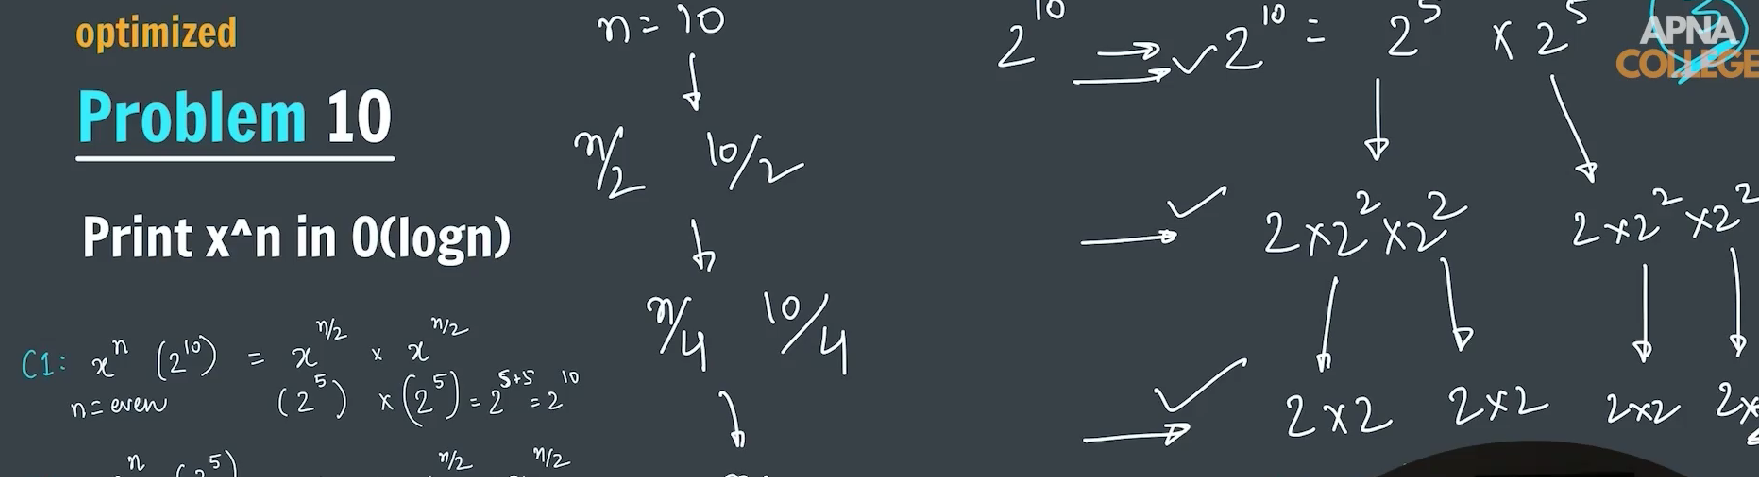 optimized
Problem 10
Print x^n in O(logn)
C1: xⁿ (2¹⁰) = x^n/2 × x^n/2
n = even (2⁵) × (2⁵) = 2⁵⁺⁵ = 2¹⁰
n (2⁵) n/2 n/2
n = 10
n/2 10/2
n/4 10/4
2¹⁰ 2¹⁰ = 2⁵ × 2⁵
2×2²×2² 2×2²×2²
2×2 2×2 2×2 2×
APNA
COLLEGE